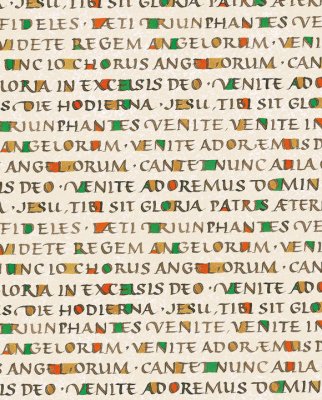 · JESU, TIBI SIT GLORIA PATRIS ÆTER
FIDELES · LÆTI TRIUNPHANTES V
VIDETE REGEM ANGELORUM · VENI
NUNC IO CHORUS ANGELORUM · CAN
LORIA IN EXCELSIS DEO · VENITE ADO
S DIE HODIERNA · JESU, TIBI SIT GLO
TRIUNPHANTES VENITE, VENITE IN
ANGELORUM · VENITE ADOREMUS DO
ANGELORUM · CANTET NUNC AULA
IS DEO · VENITE ADOREMUS DOMIN
· JESU, TIBI SIT GLORIA PATRIS ÆTER
FIDELES · LÆTI TRIUNPHANTES V
VIDETE REGEM ANGELORUM · VENI
NUNC IO CHORUS ANGELORUM · CAN
LORIA IN EXCELSIS DEO · VENITE ADO
S DIE HODIERNA · JESU, TIBI SIT GLO
TRIUNPHANTES VENITE, VENITE IN
ANGELORUM · VENITE ADOREMUS DO
ANGELORUM · CANTET NUNC AULA
IS DEO · VENITE ADOREMUS DOMIN